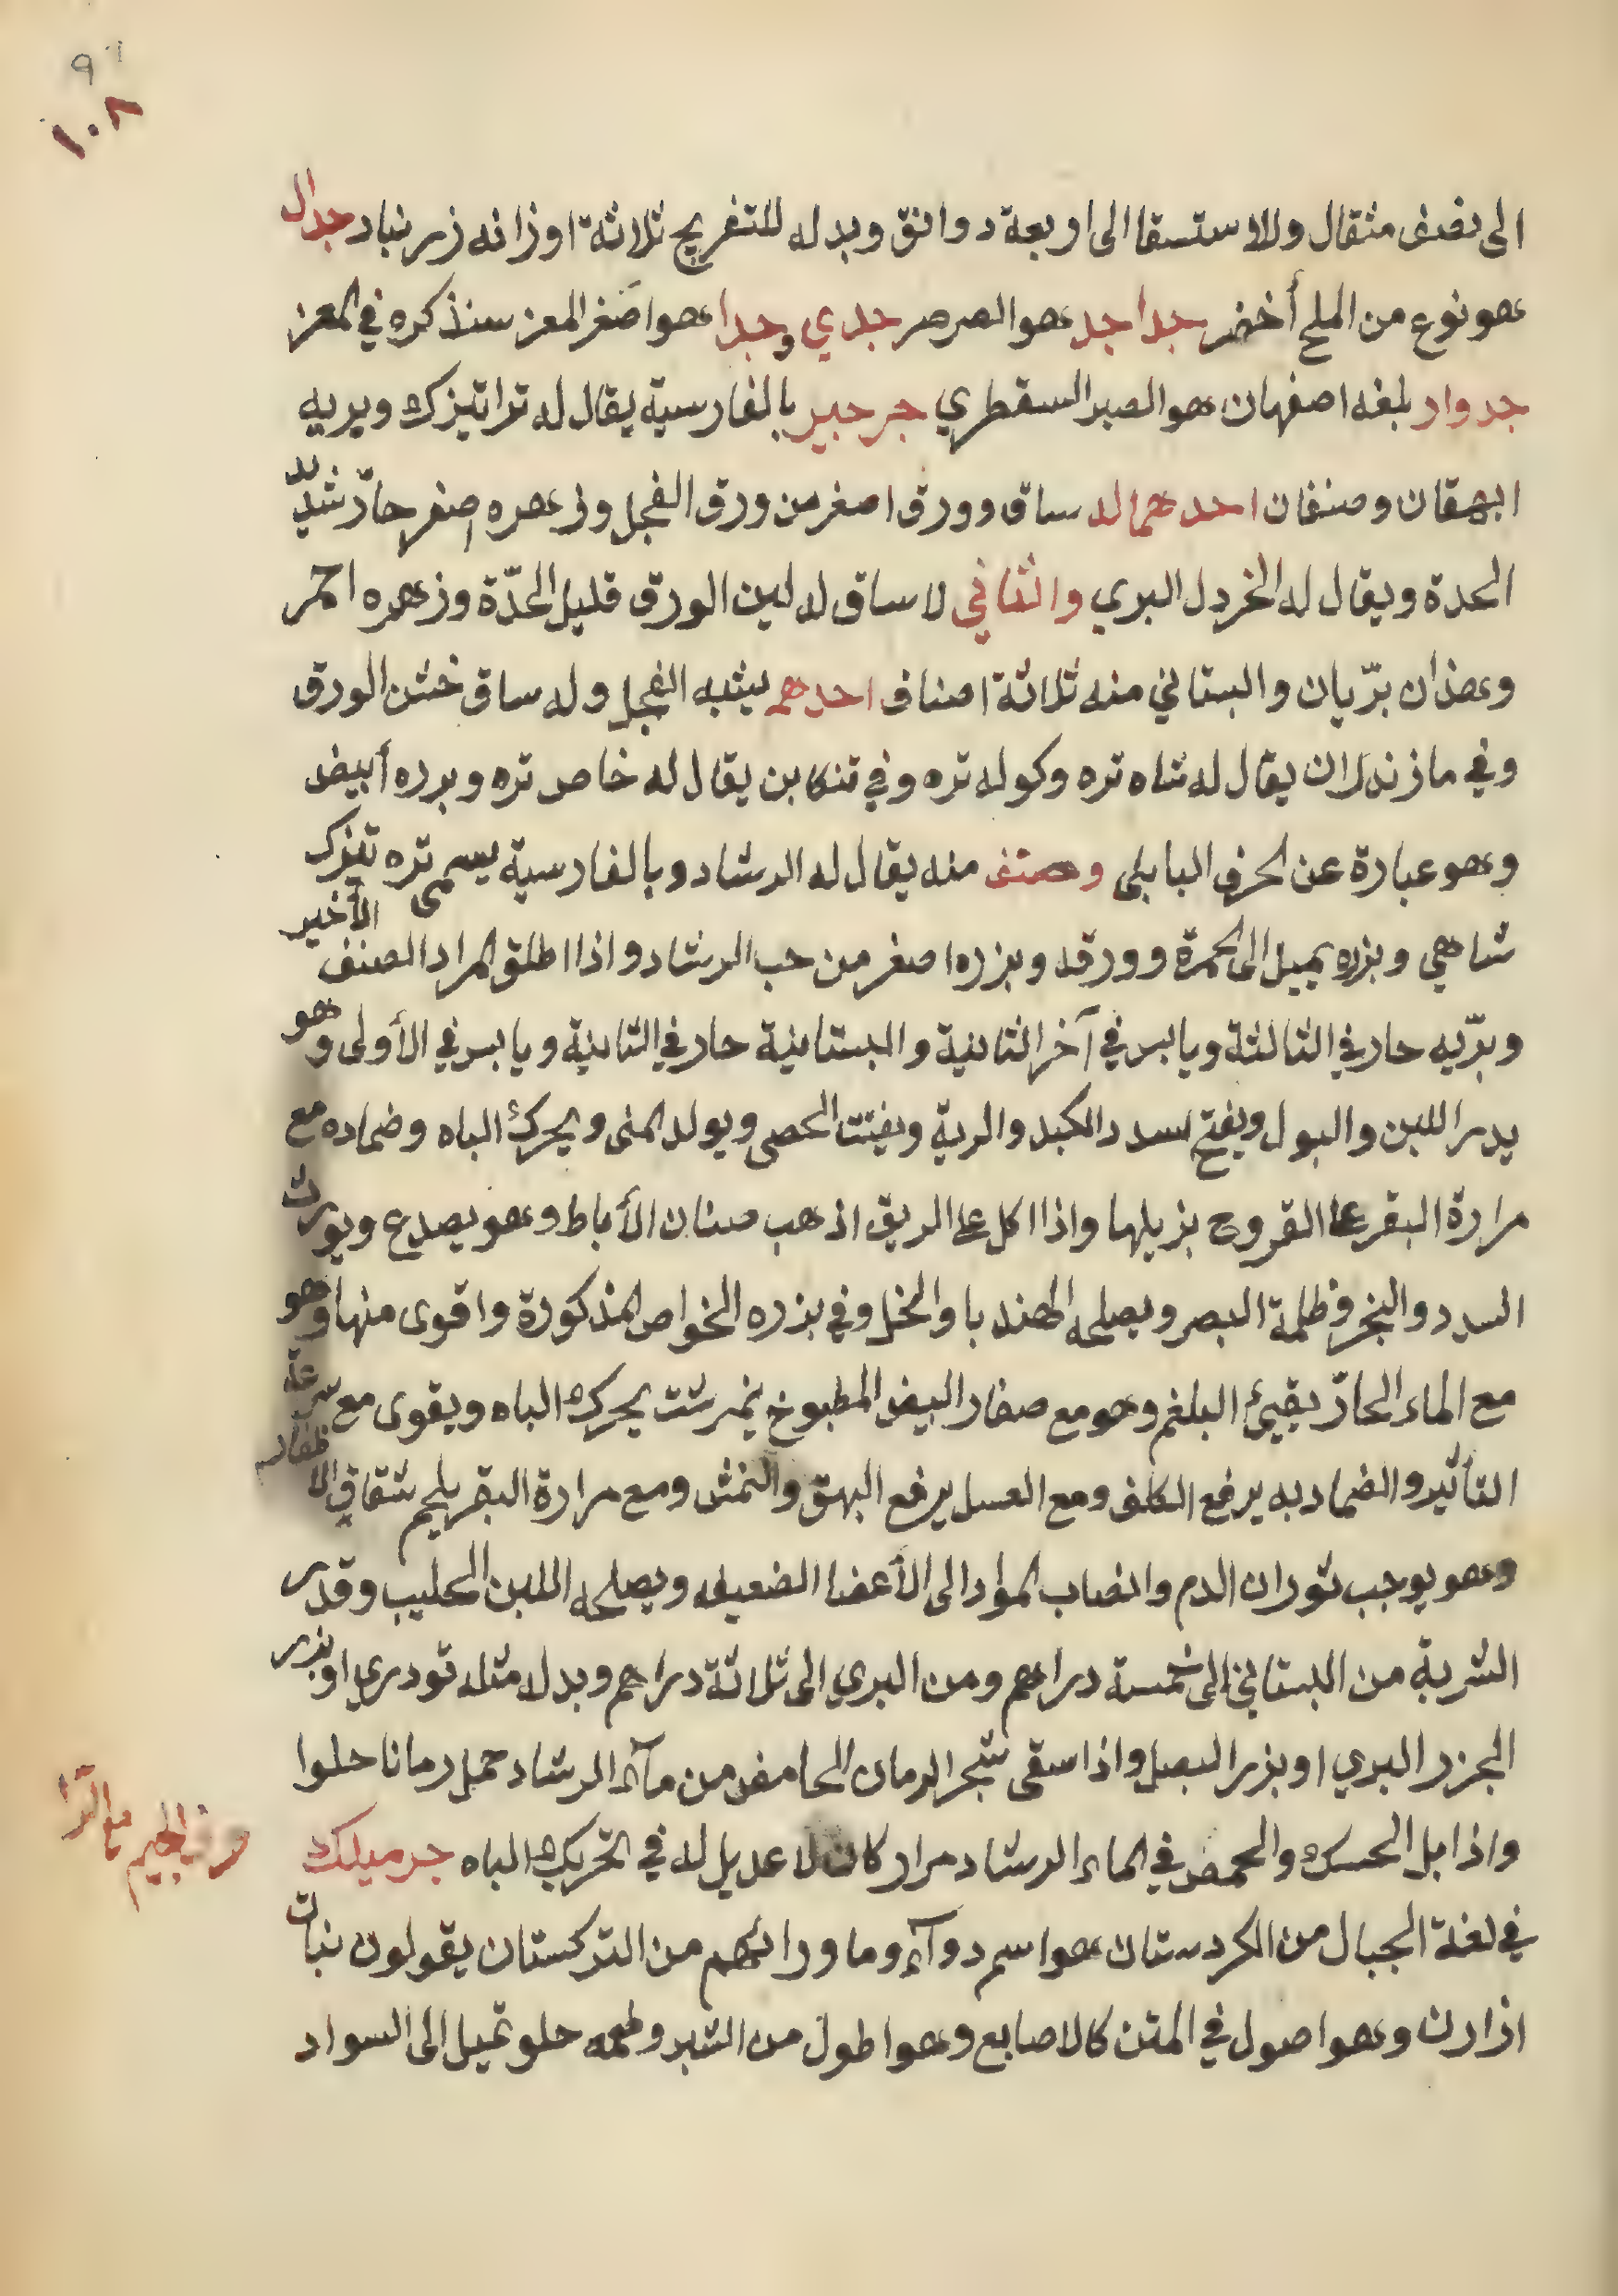 ٩٦
١٠٨
الى نصف مثقال وللاستسقا الى اربعة دوانق وبدله للتفريح ثلاثة اوزانه زرنباد جدال
هو نوع من الملح أخضر جداجد هو الصرصر جدي وجدا هو اصغر المعز سنذكره في المعز
جدوار بلغه اصفهان هو الصبر السقطري جرجير بالفارسية يقال له تراتيزك وبريه
ابهقان وصنفان احدهما له ساق وورق اصغر من ورق الفجل وزهره اصفر حادّ شديد
الحدة ويقال له الخردل البري والثاني لا ساق له لين الورق قليل الحدّة وزهره احمر
وهذان برّيان والبستاني منه ثلاثة اصناف احدهم يشبه الفجل وله ساق خشن الورق
وفي مازندران يقال له شاه تره وكوله تره وفي تنكابن يقال له خاص تره وبرره أبيض
وهو عبارة عن الحرف البابلى وصنف منه يقال له الرشاد وبالفارسية يسمى تره تيزك
شاهي وبزره يميل الى الحمرة وورقه وبزره اصغر من حب الرشاد واذا اطلق المراد الصنف الأخير
وبرّيه حار في الثالثة ويابس في آخر الثانية والبستانية حار في الثانية ويابس في الأولى وهو
يدر اللبن والبول ويفتح سدد الكبد والرية ويفتت الحصى ويولد المنى ويحرك الباه وضماده مع
مرارة البقر على القروح يزيلها واذا اكل على الريق اذهب صنان الأباط وهو يصدع ويورث
السدد والبخر وظلمة البصر ويصلحه الهندبا والخل وفي بزره الخواص المذكورة واقوى منها وهو
مع الماء الحارّ يقيئ البلغم وهو مع صفار البيض المطبوخ نيمرشت يحرك الباه ويقوى مع سرعة
التأثير والضماد به يرفع الكلف ومع العسل يرفع البهق والنمش ومع مرارة البقر يلحم شقاق الاظفار
وهو يوجب ثوران الدم وانصاب المواد الى الأعضا الضعيفه ويصلحه اللبن الحليب وقدر
الشربة من البستاني الى خمسة دراهم ومن البري الى ثلاثة دراهم وبدله مثله تودري او بزر
الجزر البري او بزر البصل واذا سقى شجر الرمان الحامض من مآء الرشاد حمل رمانا حلوا
واذا بل الحسك والحمص في الماء الرشاد مرار كان لا عديل له في تحريك الباه جرميلك
في لغة الجبال من الكردستان هو اسم دوآء وما ورائهم من التركستان يقولون نبات
اذارن وهو اصول في المتن كالاصابع وهو اطول من الشبر وطعمه حلو تميل الى السواد
حرف الجيم مع الرا